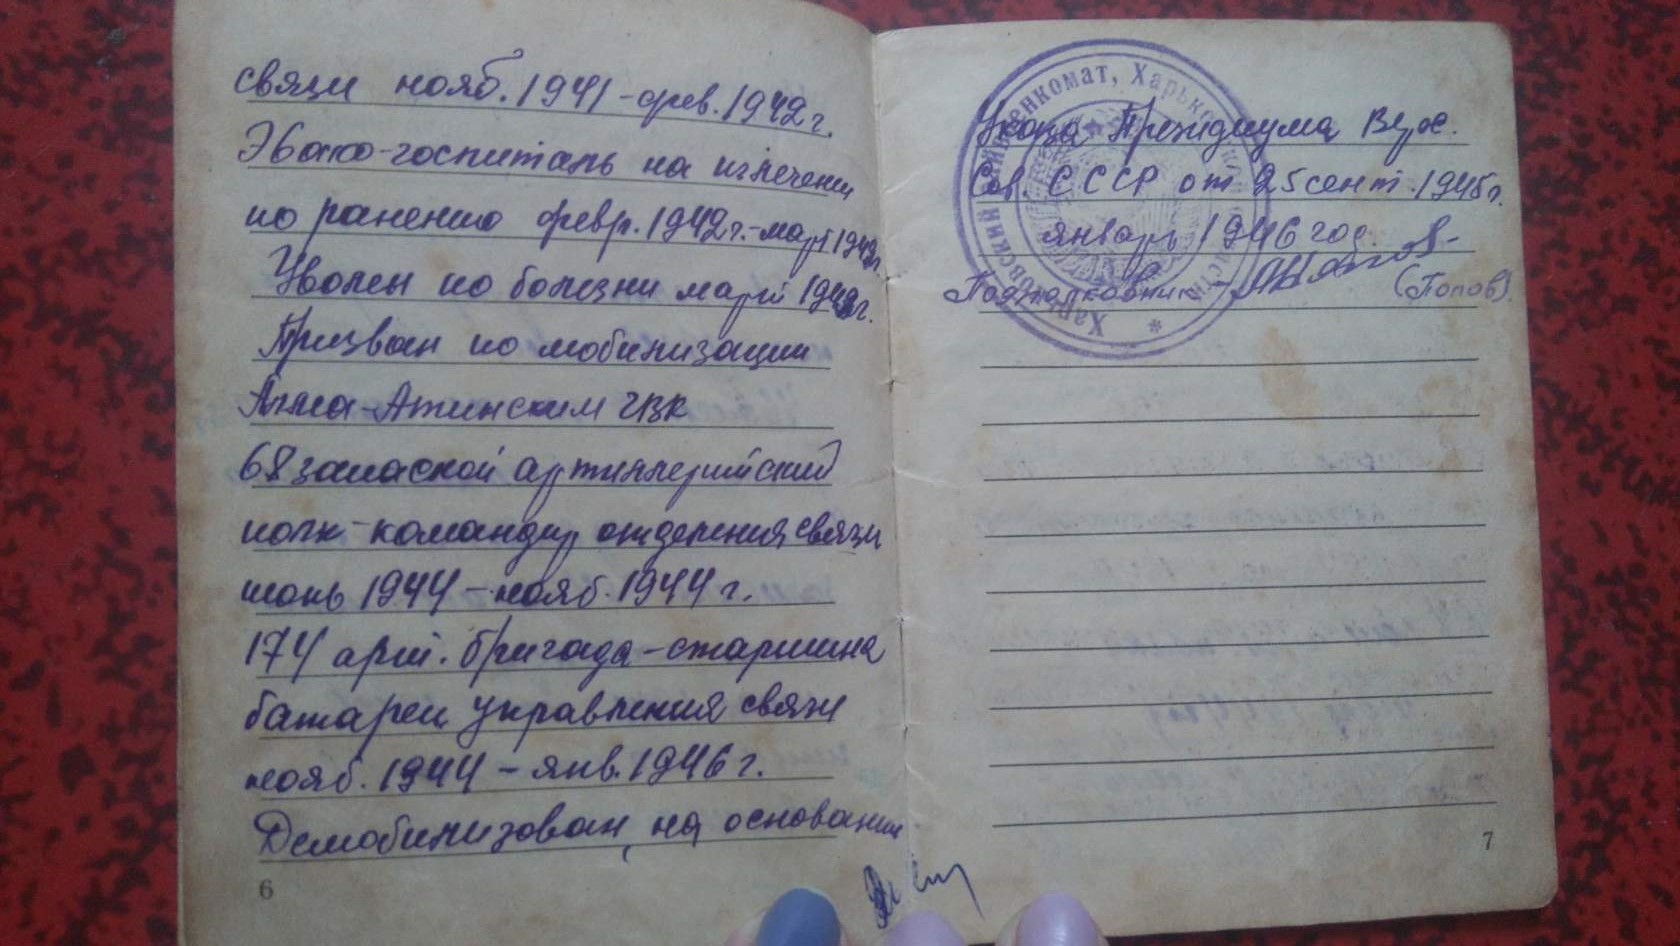 связи нояб. 1941 - фев. 1942 г.
Эвако-госпиталь на излечении
по ранению февр. 1942 г. - март 1942 г.
Уволен по болезни март 1942 г.
Призван по мобилизации
Алма-Атинским ГВК
68 запасной артиллерийский
полк - командир отделения связи
июнь 1944 - нояб. 1944 г.
174 арт. бригада - старшина
батареи управления связи
нояб. 1944 - янв. 1946 г.
Демобилизован, на основании
6
Указа Президиума Верх.
Сов. СССР от 25 сент. 1945 г.
январь 1946 год.
Подполковник - (Попов)
Харьковский военкомат, Харьковская
7